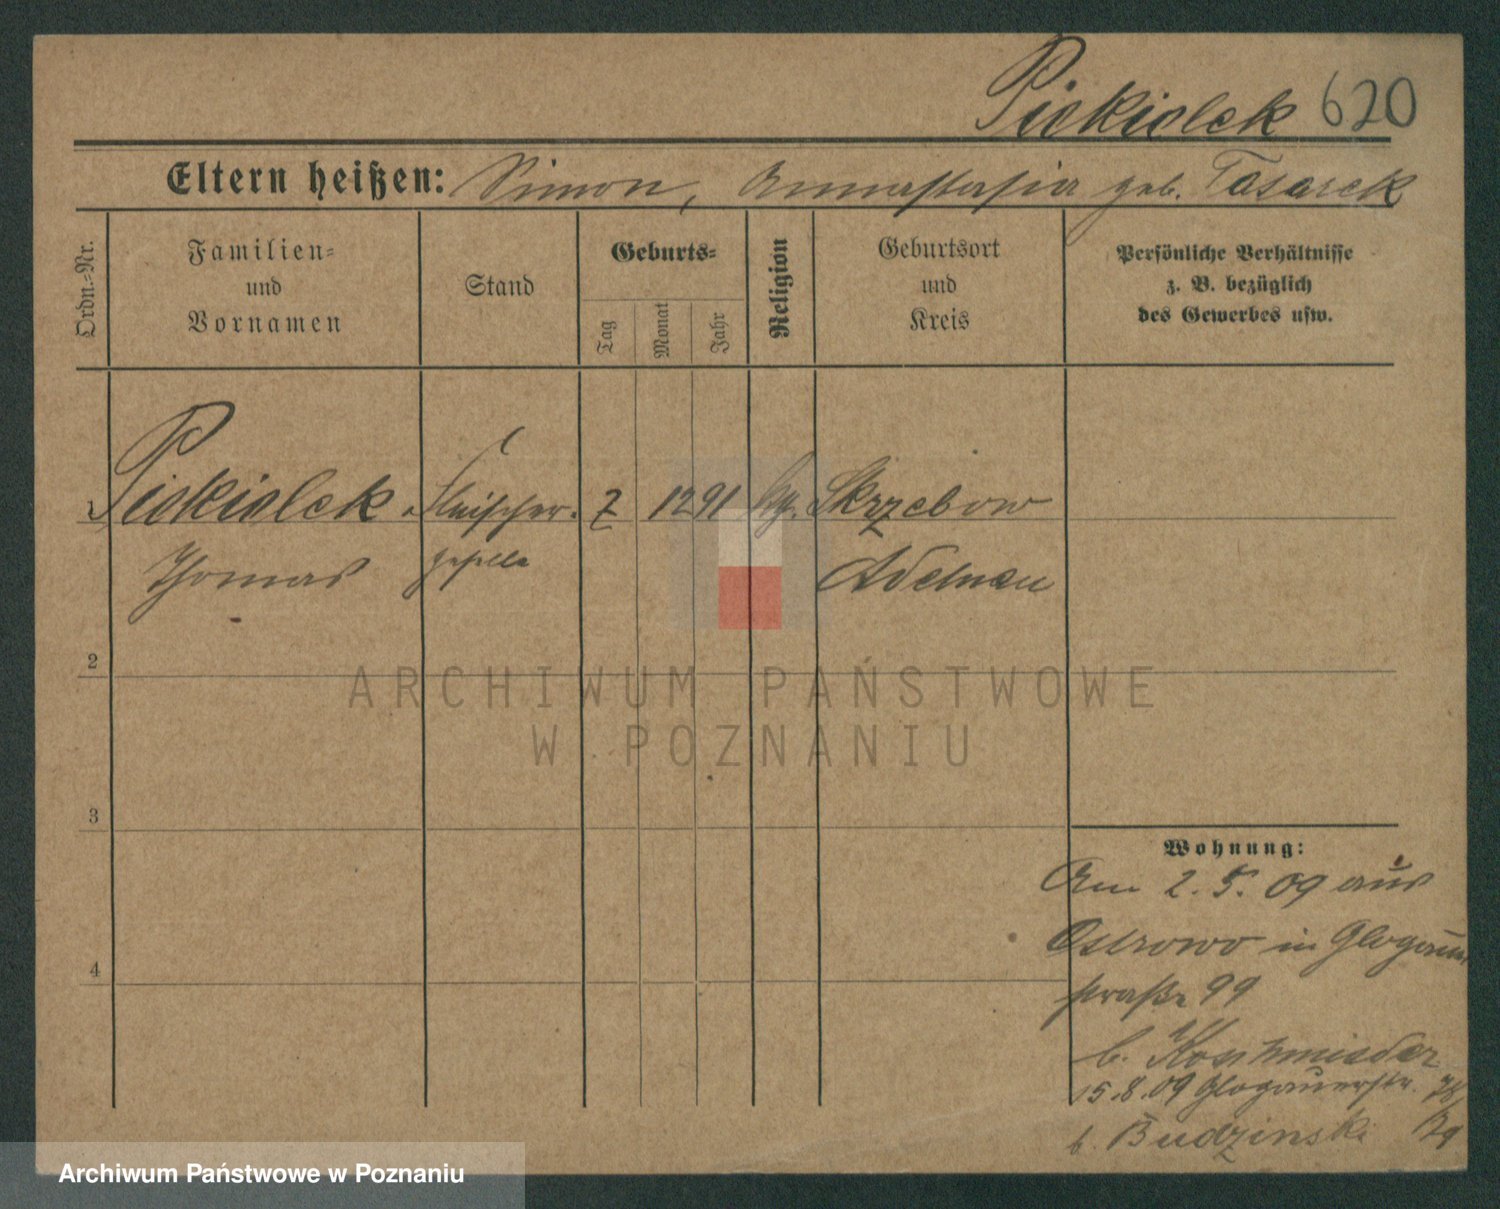 Piekielek 620
Eltern heißen: Simon, Annastasia geb. Tasarek
Ordn.-Nr.
Familien-
und
Vornamen
Stand
Geburts-
Tag
Monat
Jahr
Religion
Geburtsort
und
Kreis
Persönliche Verhältnisse
z. B. bezüglich
des Gewerbes usw.
1 Piekielek Fleischer- 2 12 91 Skrzebow
Thomas geselle Adelnau
2
3
4
Wohnung:
Am 2.5.09 aus
Ostrowo in Glogauer
straße 99
b. Koschmieder
15.8.09 Glogauerstr.
b. Budzinski
ARCHIWUM PAŃSTWOWE
W POZNANIU
Archiwum Państwowe w Poznaniu